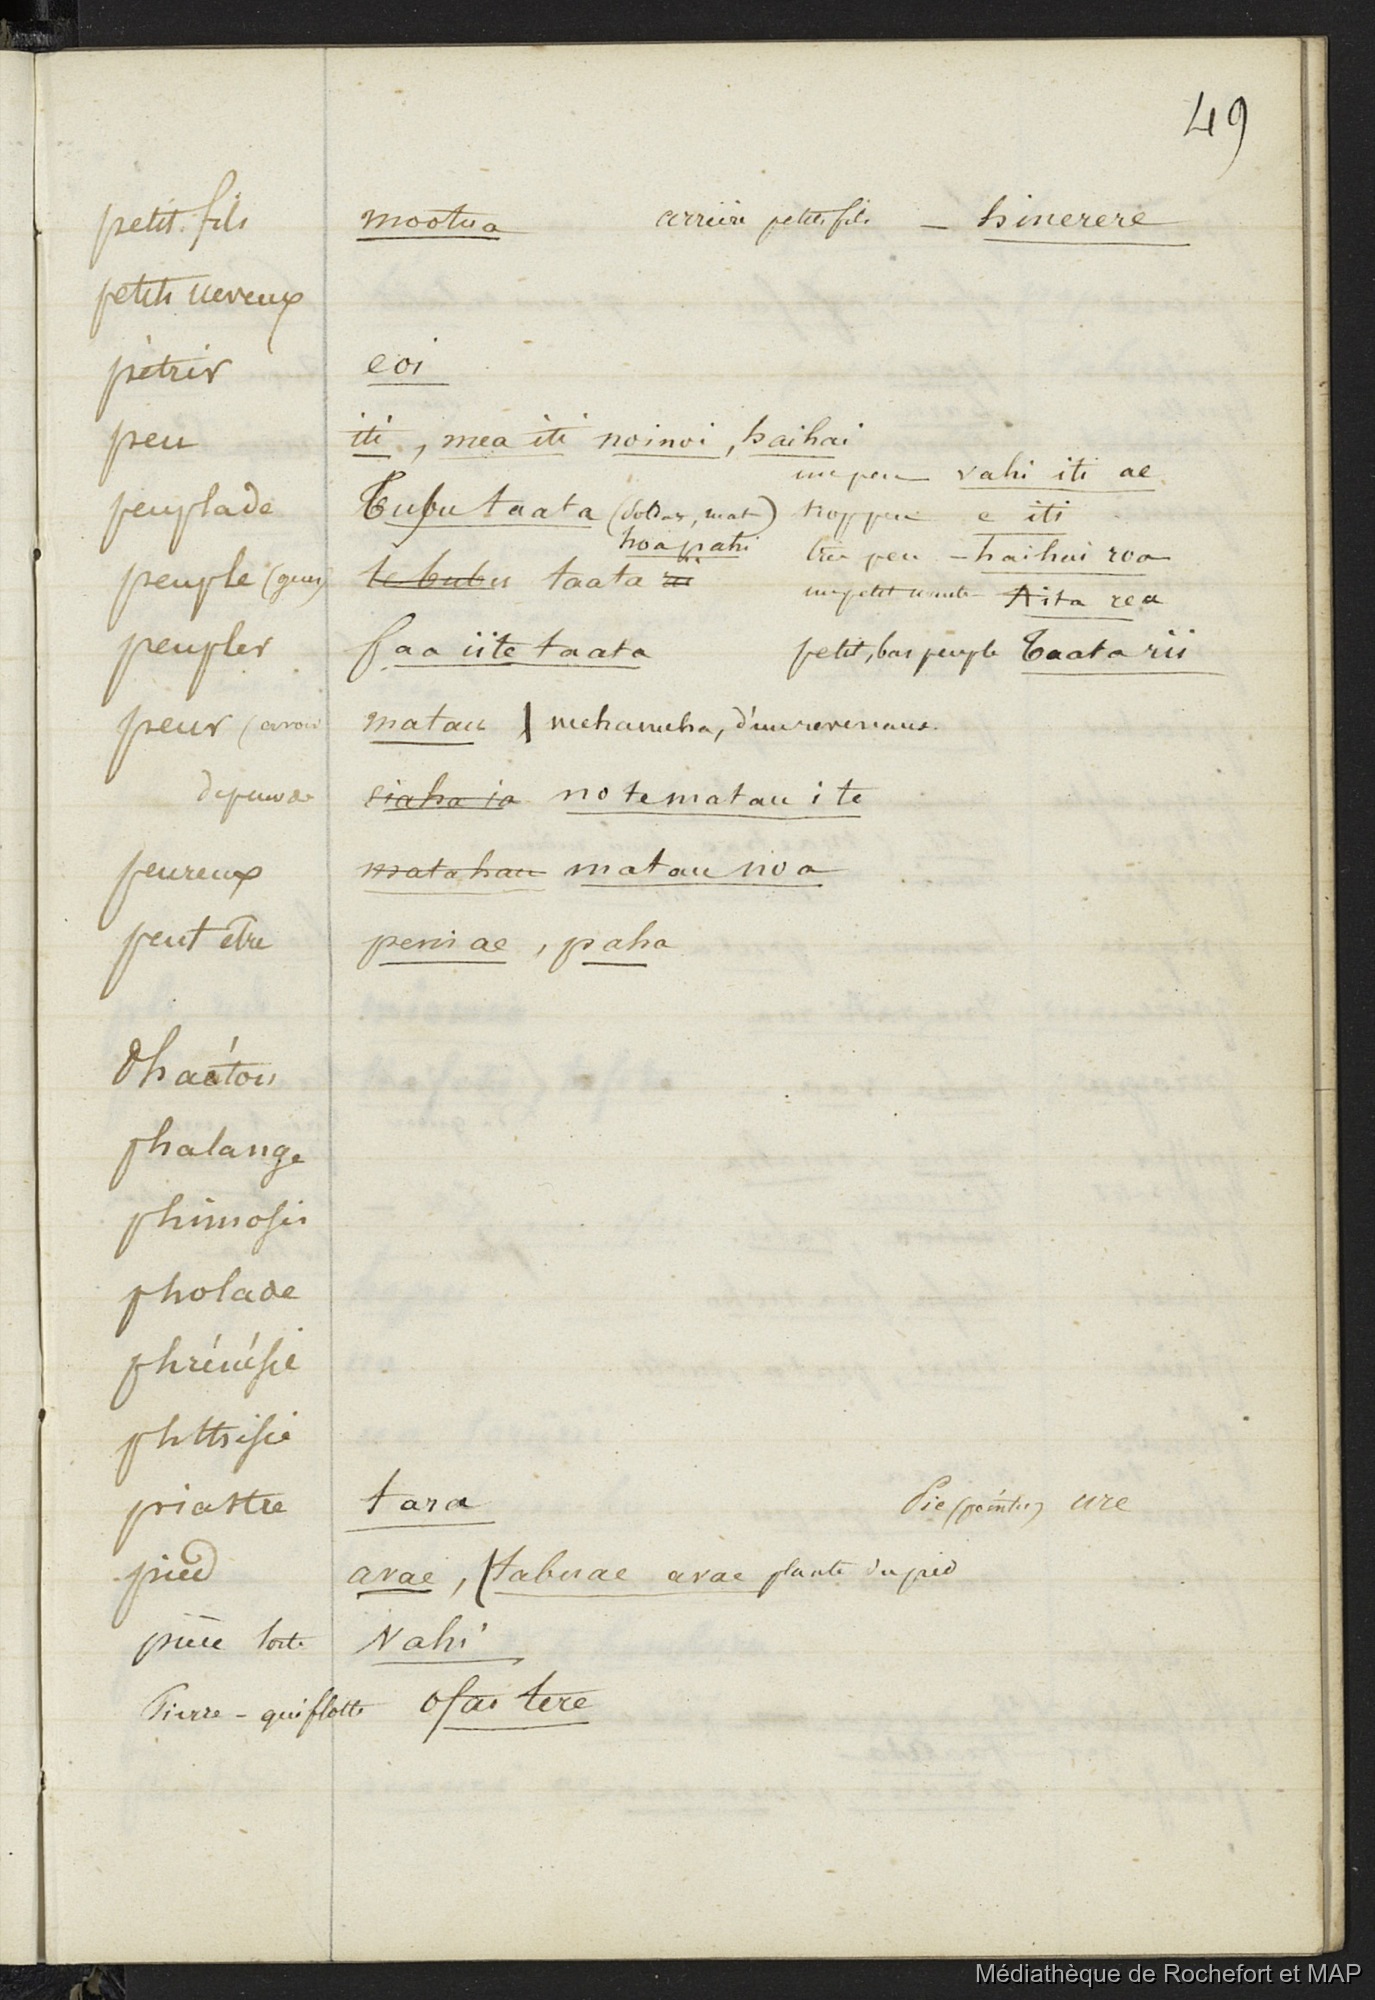 49
petit fils mootua arrière petits fils - hinerere
petits neveux
pétrir eoi
peu iti, mea iti noinoi, haihai
un peu vahi iti ae
peuplade Pupu taata (soldas, mat) trop peu e iti
hoa pahi très peu - haihai roa
peuple (gens) te pupu taata rii un petit nombre Aita rea
peupler faa iite taata petit, bas peuple Taata rii
peur (avoir matau | mehameha, d'un revenant
de peur de eiaha ia no te matau i te
peureux matahau matau noa
peut être penei ae, paha
Phaéton
phalange
phimosis
pholade
phrénésie
phttisie
piastre tara Pie (pointu) ure
pied avae, (tapuae avae plante du pied
pierre Nahi
Pierre - qui flotte Ofai tere
Médiathèque de Rochefort et MAP